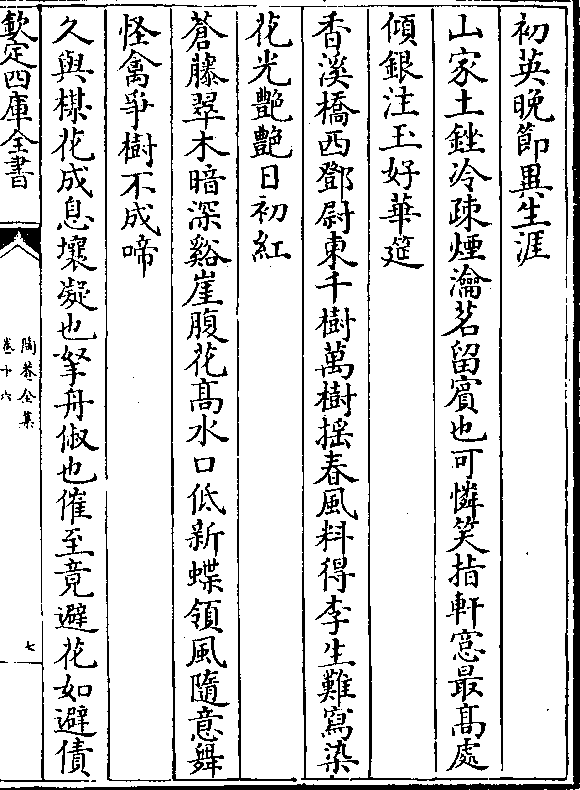 初英晚節異生涯
山家土銼冷疎煙瀹茗留賓也可憐笑指軒窓最髙處
傾銀注玉好華筵
香溪橋西鄧尉東千樹萬樹揺春風料得李生難寫染
花光艷艷日初紅
蒼藤翠木暗深谿崖腹花髙水口低新蝶領風隨意舞
怪禽爭樹不成啼
久與楳花成息壤凝也拏舟俶也催至竟避花如避債
欽定四庫全書
陶菴全集
卷十六
七